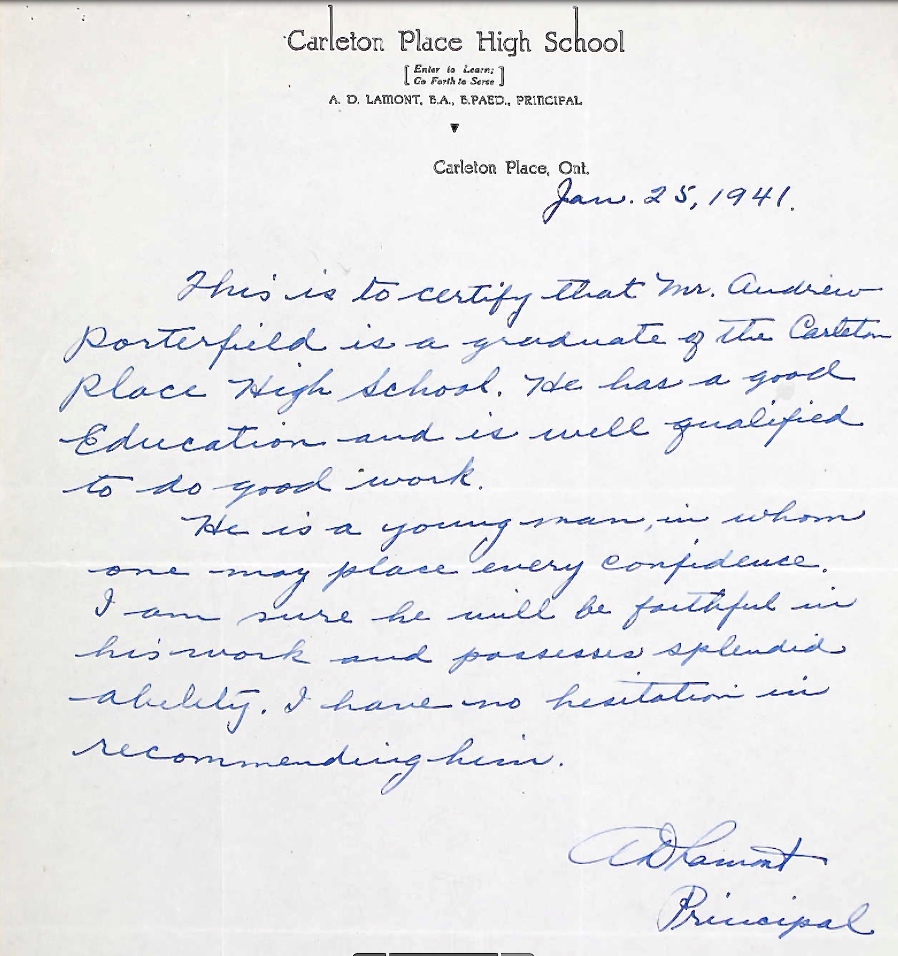 Carleton Place High School
[Enter to Learn;
Go Forth to Serve]
A. D. LAMONT, B.A., B.PAED., PRINCIPAL
Carleton Place, Ont.
Jan. 25, 1941.
This is to certify that Mr. Andrew
Porterfield is a graduate of the Carleton
Place High School. He has a good
Education and is well qualified
to do good work.
He is a young man, in whom
one may place every confidence.
I am sure he will be faithful in
his work and possesses splendid
ability. I have no hesitation in
recommending him.
A D Lamont
Principal